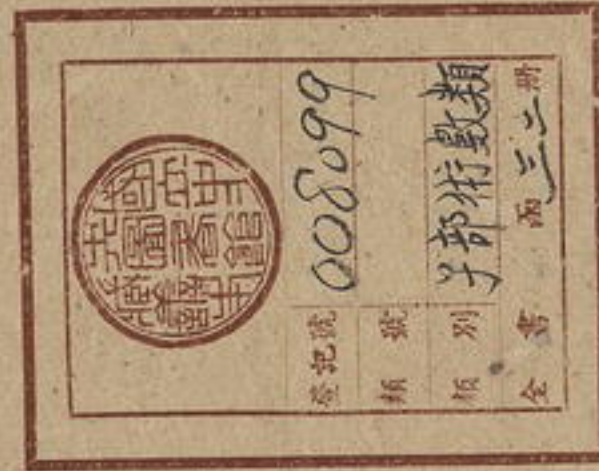 登記號 008099
類號
類別 子部術數類
全書 函 三二 册